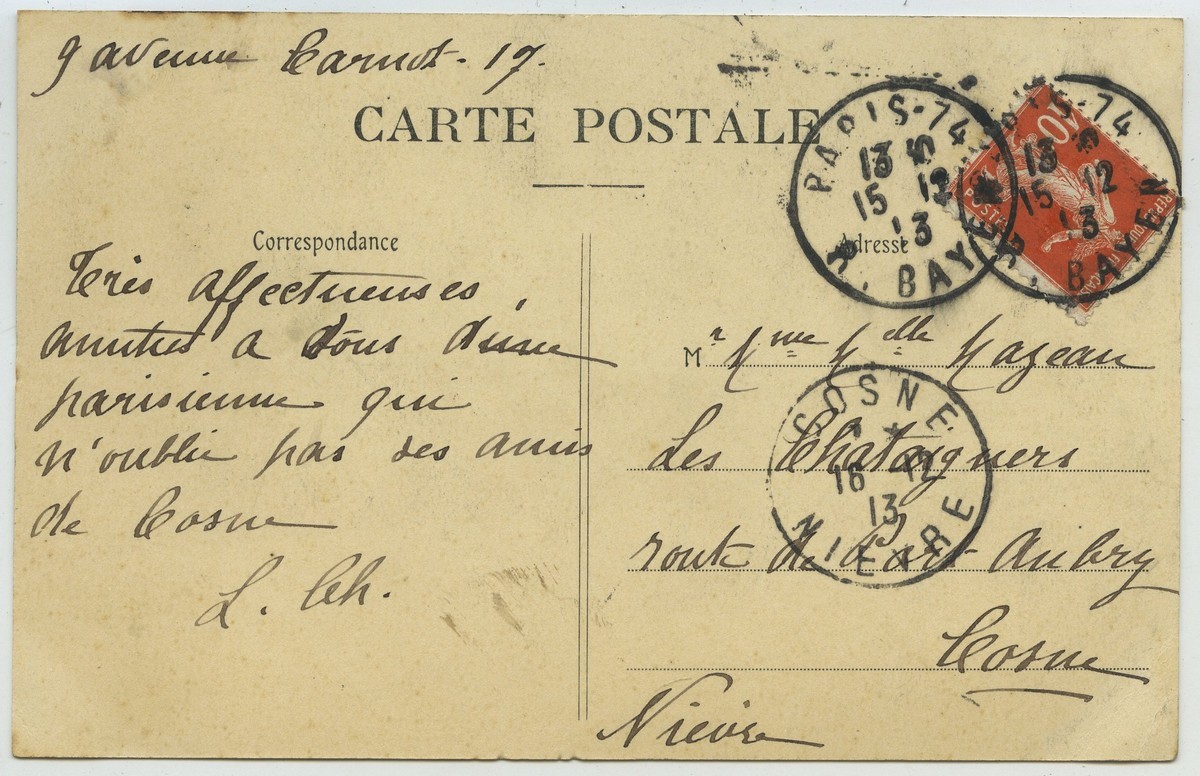 9 avenue Carnot - 17.
CARTE POSTALE
PARIS-74
13 5
15 12
13
R. BAYEN
PARIS-74
13 5
15 12
13
R. BAYEN
10
POSTES
Correspondance
Adresse
Très affectueuses,
amitiés a tous d'une
parisienne qui
n'oublie pas ses amis
de Cosne
L. Ch.
Mr Mme Melle Mazeau
Les Chataigners
route de Aubry
Cosne
Nièvre
COSNE
16 12
13
NIEVRE